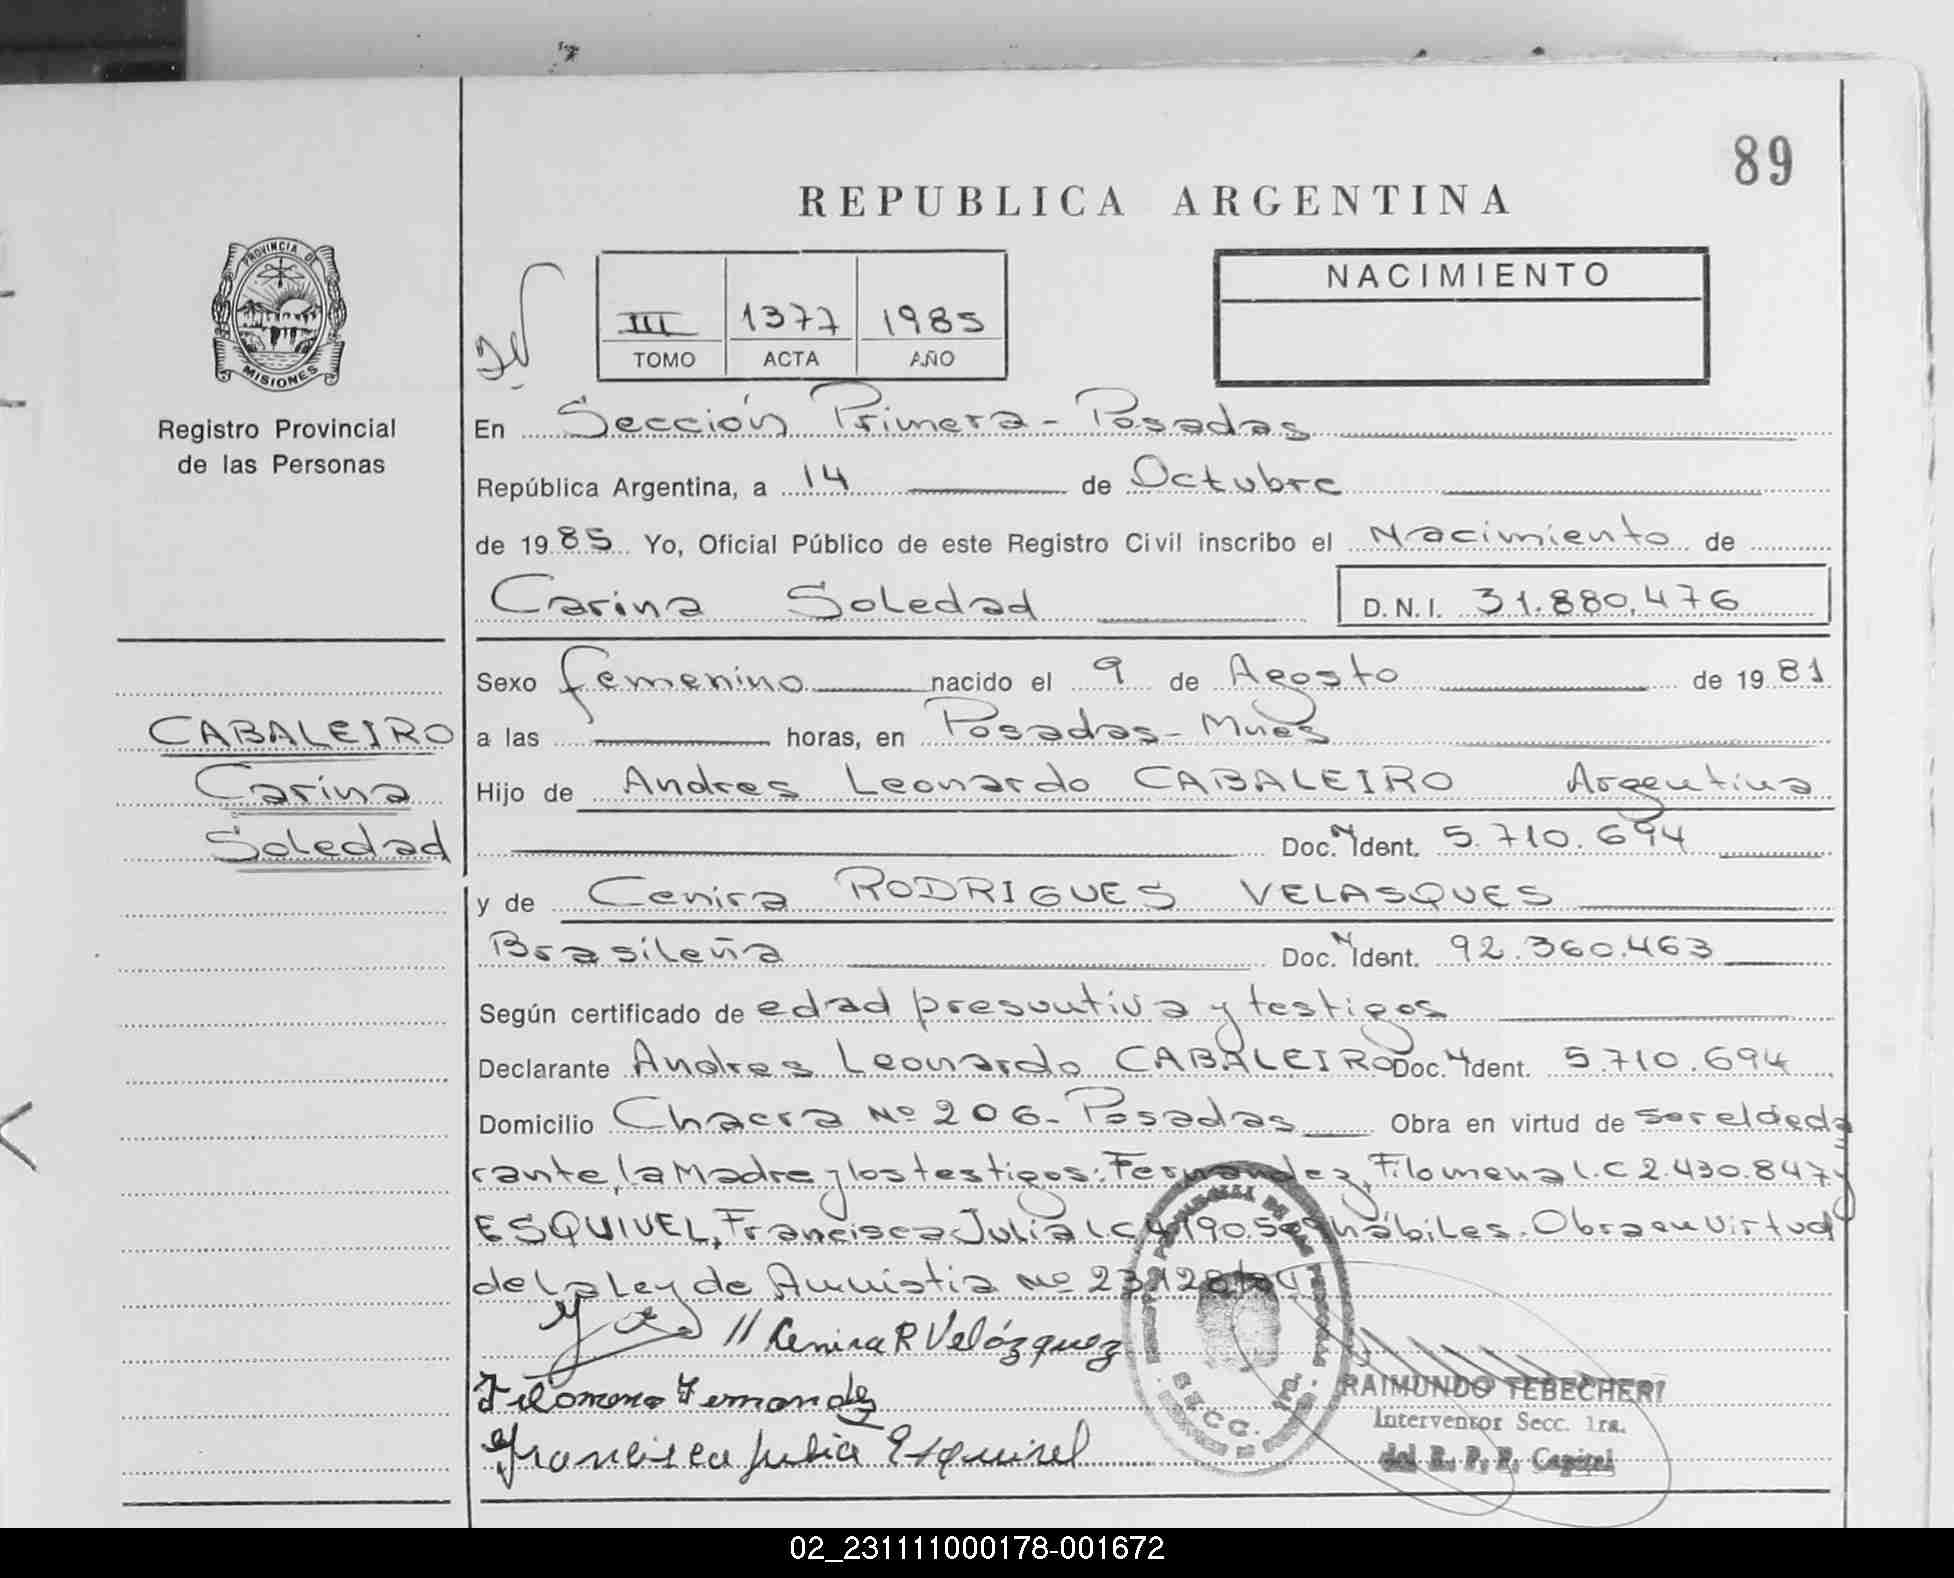 89
REPUBLICA ARGENTINA
PROVINCIA DE
MISIONES
Registro Provincial
de las Personas
III 1377 1985
TOMO ACTA AÑO
NACIMIENTO
En Sección Primera - Posadas
República Argentina, a 14 de Octubre
de 1985 Yo, Oficial Público de este Registro Civil inscribo el Nacimiento de
Carina Soledad D.N.I. 31.880.476
CABALEIRO
Carina
Soledad
Sexo femenino nacido el 9 de Agosto de 1981
a las horas, en Posadas - Mnes
Hijo de Andres Leonardo CABALEIRO Argentina
Doc. N Ident. 5.710.694
y de Cenira RODRIGUES VELASQUES
Brasileña Doc. N Ident. 92.360.463
Según certificado de edad presuutiva y testigos
Declarante Andres Leonardo CABALEIRO Doc. N Ident. 5.710.694
Domicilio Chacra Nº 206 - Posadas Obra en virtud de ser el decla
rante, la Madre y los testigos: Fernandez, Filomena L.C 2.430.847 y
ESQUIVEL, Francisca Julia L.C hábiles. Obra en virtud
de la Ley de Amnistia Nº
Cenira R Velázquez
Filomena Fernandez
Francisca Julia Esquivel
SECC. 1ra.
RAIMUNDO TEBECHERI
Interventor Secc. 1ra.
del R. P. P. Capital
02_231111000178-001672